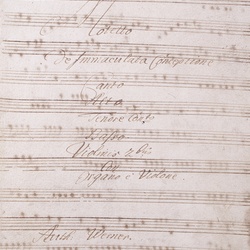 Motetto
De Immaculata Conceptione
Canto
Alto
Tenore Conc:
Basso
Violinis 2bus
Organo e Violone
Werner